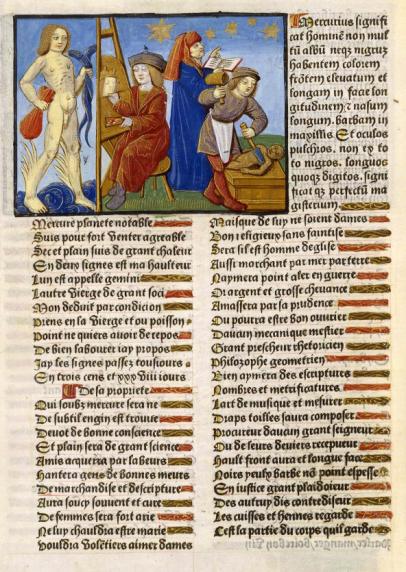 Mercurius signifi
cat hominē non mul
tū albū neqz nigruz
habentem colorem
frōtem eleuatum et
longam in facie lon
gitudinem z nasum
longum. barbam in
maxillis Et oculos
pulchros. non ex to
to nigros. longuos
quoqz digitos. signi
ficat qz perfectū ma
gisterium.
Mercure planete notable
Suis pour fort venter agreable
Sec et plain suis de grant chaleur
En deux signes est ma haulteur
Lun est appelle gemini
Lautre vierge de grant soci
Mon deduit par condicion
Prens en la vierge et ou poisson
Point ne quiers auoir de repos
De bien labourer iay propos
Jay les signes passez tousiours
En trois cens et xxxviii iours
De sa propriete
Qui soubz mercure sera ne
De subtil engin est trouue
Deuot de bonne conscience
Et plain sera de grant science
Amis acquerra par labeurs
Hantera gens de bonnes meurs
De marchandise et descripture
Aura soup souuent et cure
De femmes sera fort arie
Ne luy chauldra estre marie
Vouldra voletiers aimer dames
Mais que de luy ne soient dames
Bon religieux sans faintise
Sera sil est homme deglise
Aussi marchant par mer par terre
Naymera point aler en guerre
Or argent et grosse cheuance
Amassera par sa prudence
Ou pourra estre bon ouurier
Daucun mecanique mestier
Grant prescheur rhetoricien
Philozophe geometrien
Bien aymera des escriptures
Nombres et metrificatures
Lart de musique et mesurer
Draps toilles saura composer
Procureur daucun grant seigneur
Ou de leurs deniers recepueur
Hault front aura et longue face
Noirs yeulx barbe nō point espesse
En iustice grant plaidoieur
Des autruy dis contrediseur
Les cuisses et hennes regarde
Cest la partie du corps quil garde